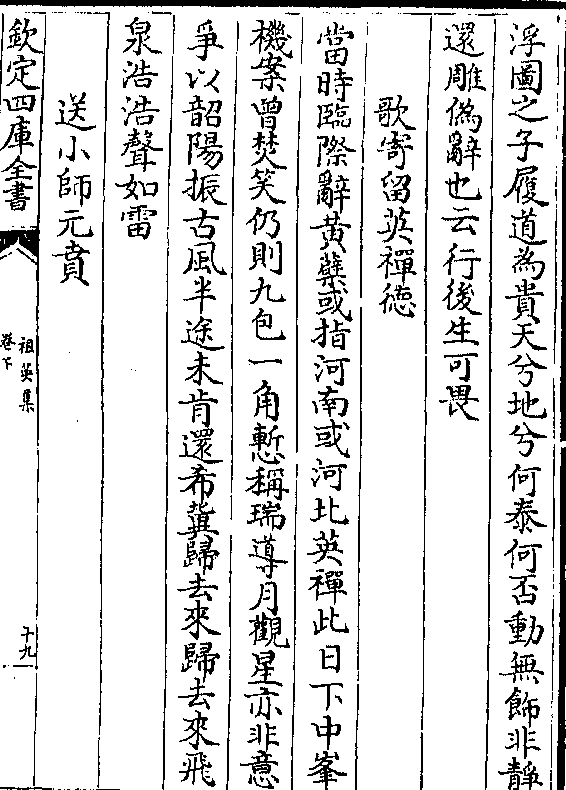 浮圖之子履道為貴天兮地兮何泰何否動無飾非靜
還雕偽辭也云行後生可畏
歌寄留英禪德
當時臨際辭黃蘗或指河南或河北英禪此日下中峯
機案曽焚笑仍則九包一角慙稱瑞導月觀星亦非意
爭以韶陽振古風半途未肯還希冀歸去來歸去來飛
泉浩浩聲如雷
送小師元賁
欽定四庫全書
祖英集
卷下
十九